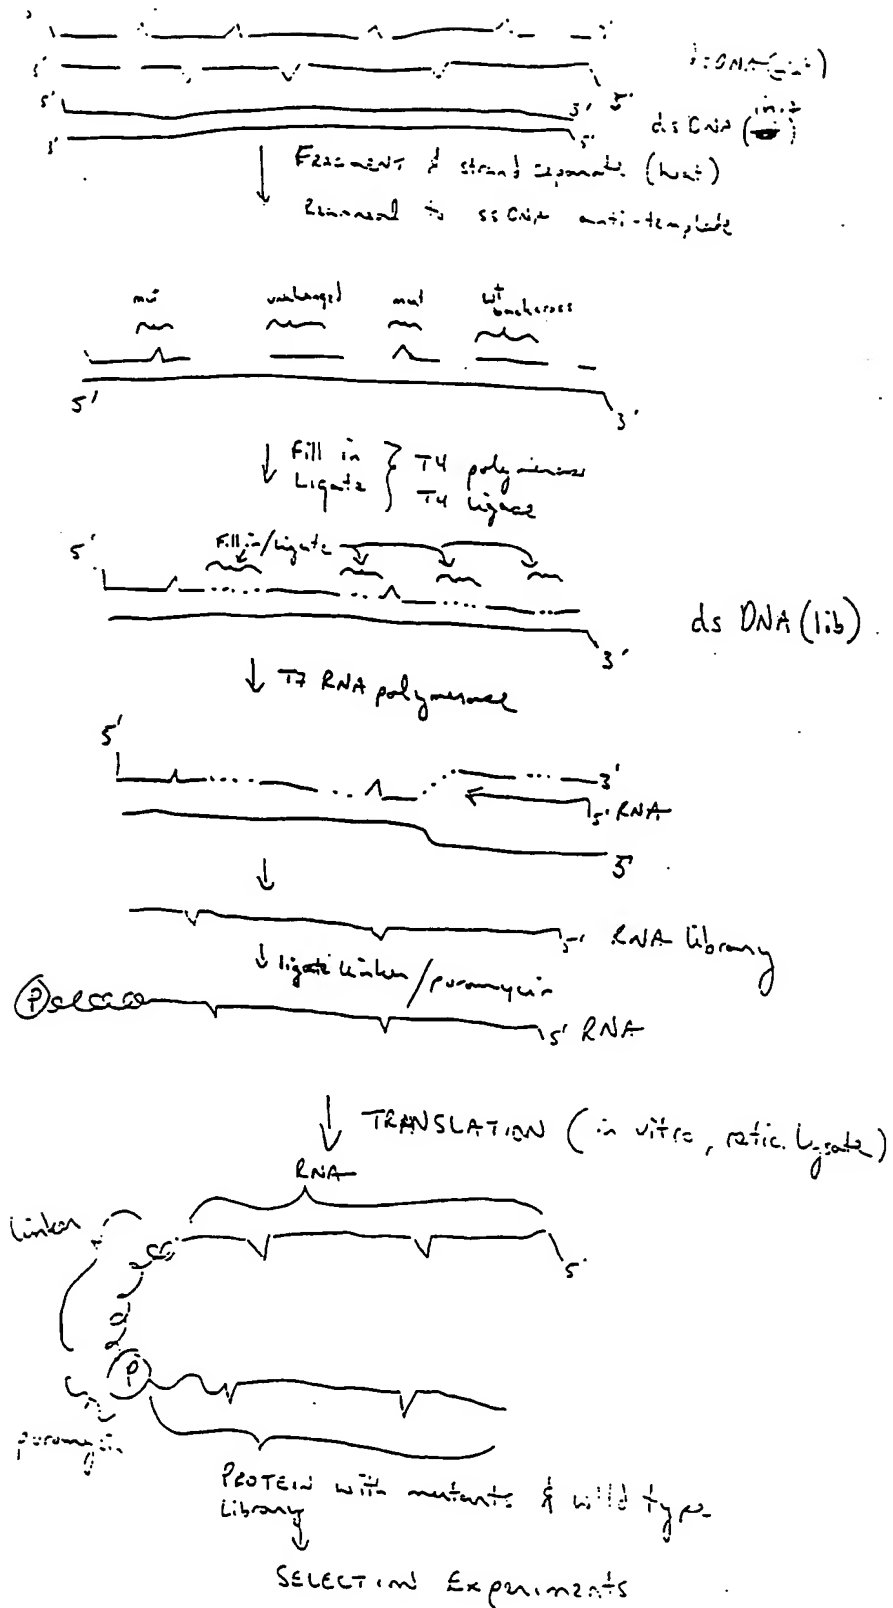 3'
5'
3'
5'
3'
5'
ds DNA (init)
FRAGMENT & strand separate (heat)
Reanneal to ssDNA anti-template
mut unchanged mut wt backcross
5'
3'
Fill in } T4 polymerase
Ligate } T4 ligase
5'
Fill in/ligate
ds DNA (lib)
3'
T7 RNA polymerase
5'
3'
5' RNA
3'
5' RNA library
ligate linker/puromycin
P
5' RNA
TRANSLATION (in vitro, retic. lysate)
RNA
linker
5'
P
puromycin
PROTEIN with mutants & wild type
Library
SELECTION Experiments